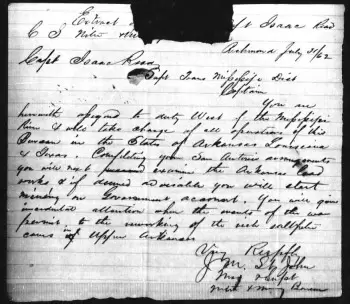 Extract Capt Isaac Read
C S Nitre
Richmond July 31/62
Capt Isaac Read
Supt Trans Mississippi Dist
Captain
You are
herewith assigned to duty West of the Mississippi
River & will take charge of all operations of this
Bureau in the States of Arkansas Louisiana
& Texas. Completing your San Antonio arrangements
you will next examine the Arkansas Lead
works & if deemed advisable you will start
mining on Government account. You will give
immediate attention when the events of the war
permit to the reworking of the rich saltpetre
caves of Upper Arkansas
Very Respfy
J M. St John
Maj & Supt
Nitre & Mining Bureau